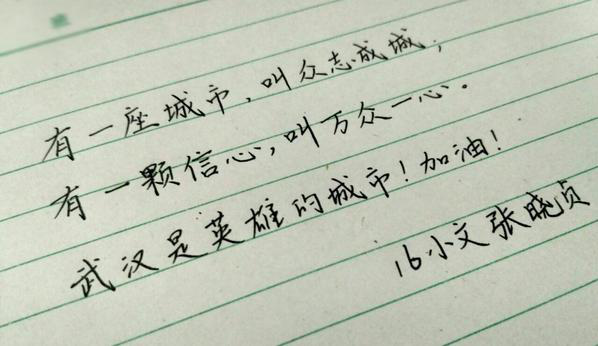 有一座城市，叫众志成城；
有一颗信心，叫万众一心。
武汉是英雄的城市！加油！
16小文张晓贞